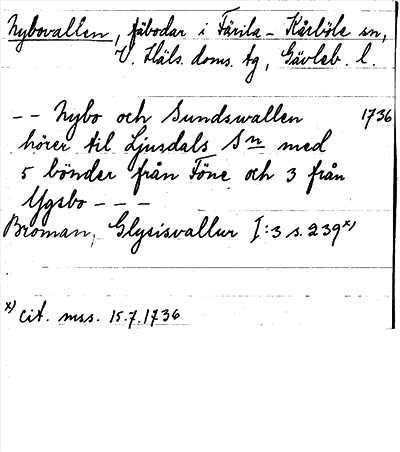 Nybovallen, fäbodar i Färila-Kårböle sn,
V. Häls. doms. tg, Gävleb. l.
-- Nybo och Sundswallen 1736
hörer til Ljusdals Sn med
5 bönder från Föne och 3 från
Ygsbo ---
Broman, Glysisvallur I:3 s. 239x)
x) cit. mss. 15.7.1736